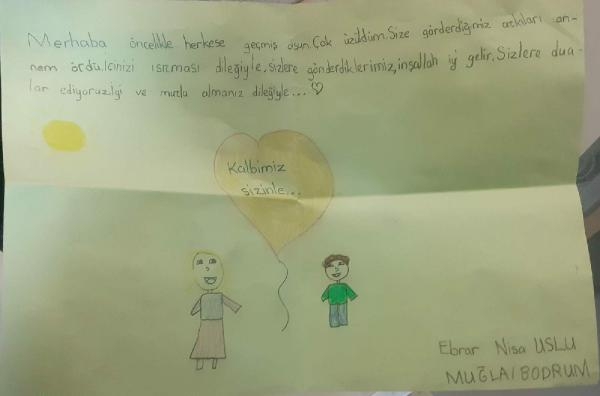 Merhaba öncelikle herkese geçmiş olsun. Çok üzüldüm. Size gönderdiğimiz atkıları an-
nem ördü. İçinizi ısıtması dileğiyle. sizlere gönderdiklerimiz, inşallah iyi gelir. Sizlere dua-
lar ediyoruz. İyi ve mutlu olmanız dileğiyle... ♡
Kalbimiz
sizinle...
Ebrar Nisa USLU
MUĞLA/BODRUM